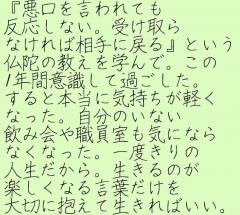 『悪口を言われても
反応しない。受け取ら
なければ相手に戻る』という
仏陀の教えを学んで。この
1年間意識して過ごした。
すると本当に気持ちが軽く
なった。自分のいない
飲み会や職員室も気になら
なくなった。一度きりの
人生だから。生きるのが
楽しくなる言葉だけを
大切に抱えて生きればいい。